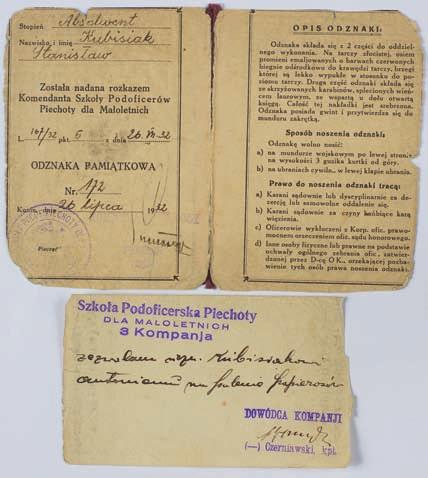 Stopień Absolwent
Nazwisko i imię Kubisiak
Stanisław
Została nadana rozkazem
Komendanta Szkoły Podoficerów
Piechoty dla Małoletnich
L. 167/32 pkt 5 z dnia 26.VII.32
ODZNAKA PAMIĄTKOWA
Nr. 172
dnia 26 lipca 1932
Pieczęć
OPIS ODZNAKI:
Odznaka składa się z 2 części do oddziel-
nego wykonania. Na tarczy złoconej, osiem
promieni emaljowanych o barwach czerwonych
biegnie odśrodkowo do krawędzi tarczy, brzegi
której są lekko wypukłe w stosunku do po-
ziomu tarczy. Druga część odznaki składa się
ze skrzyżowanych karabinów, splecionych wień-
cem laurowym, ze wspartą u dołu otwartą
księgą. Całość tej nakładki jest srebrzona.
Odznaka posiada gwint i przytwierdza się do
munduru zakrętką.
Sposób noszenia odznaki:
Odznakę wolno nosić:
a) na mundurze wojskowym po lewej stronie
na wysokości 3 guzika kurtki od góry.
b) na ubraniach cywiln., w lewej klapie ubrania.
Prawo do noszenia odznaki tracą:
a) Karani sądownie lub dyscyplinarnie za de-
zercję lub samowolne oddalenie się.
b) Karani sądownie za czyny hańbiące karą
więzienia.
c) Oficerowie wykluczeni z Korp. ofic. prawo-
mocnem orzeczeniem ofic. sądu honorowego.
d) Inne osoby fizyczne lub prawne na podstawie
uchwały ogólnego zebrania ofic., zatwier-
dzonej przez D-cę O K., orzekającej pozba-
wienie tych osób prawa noszenia odznaki.
Szkoła Podoficerska Piechoty
DLA MAŁOLETNICH
3 Kompanja
zezwalam Kubisiakowi
Antoniemu na palenie papierosów
DOWÓDCA KOMPANJI
(—) Czerniawski, kpt.